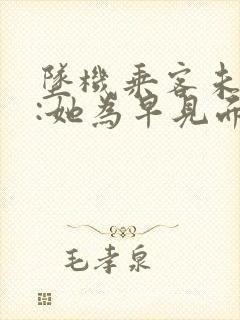 墜機乘客未
:她為早見而
毛孝泉